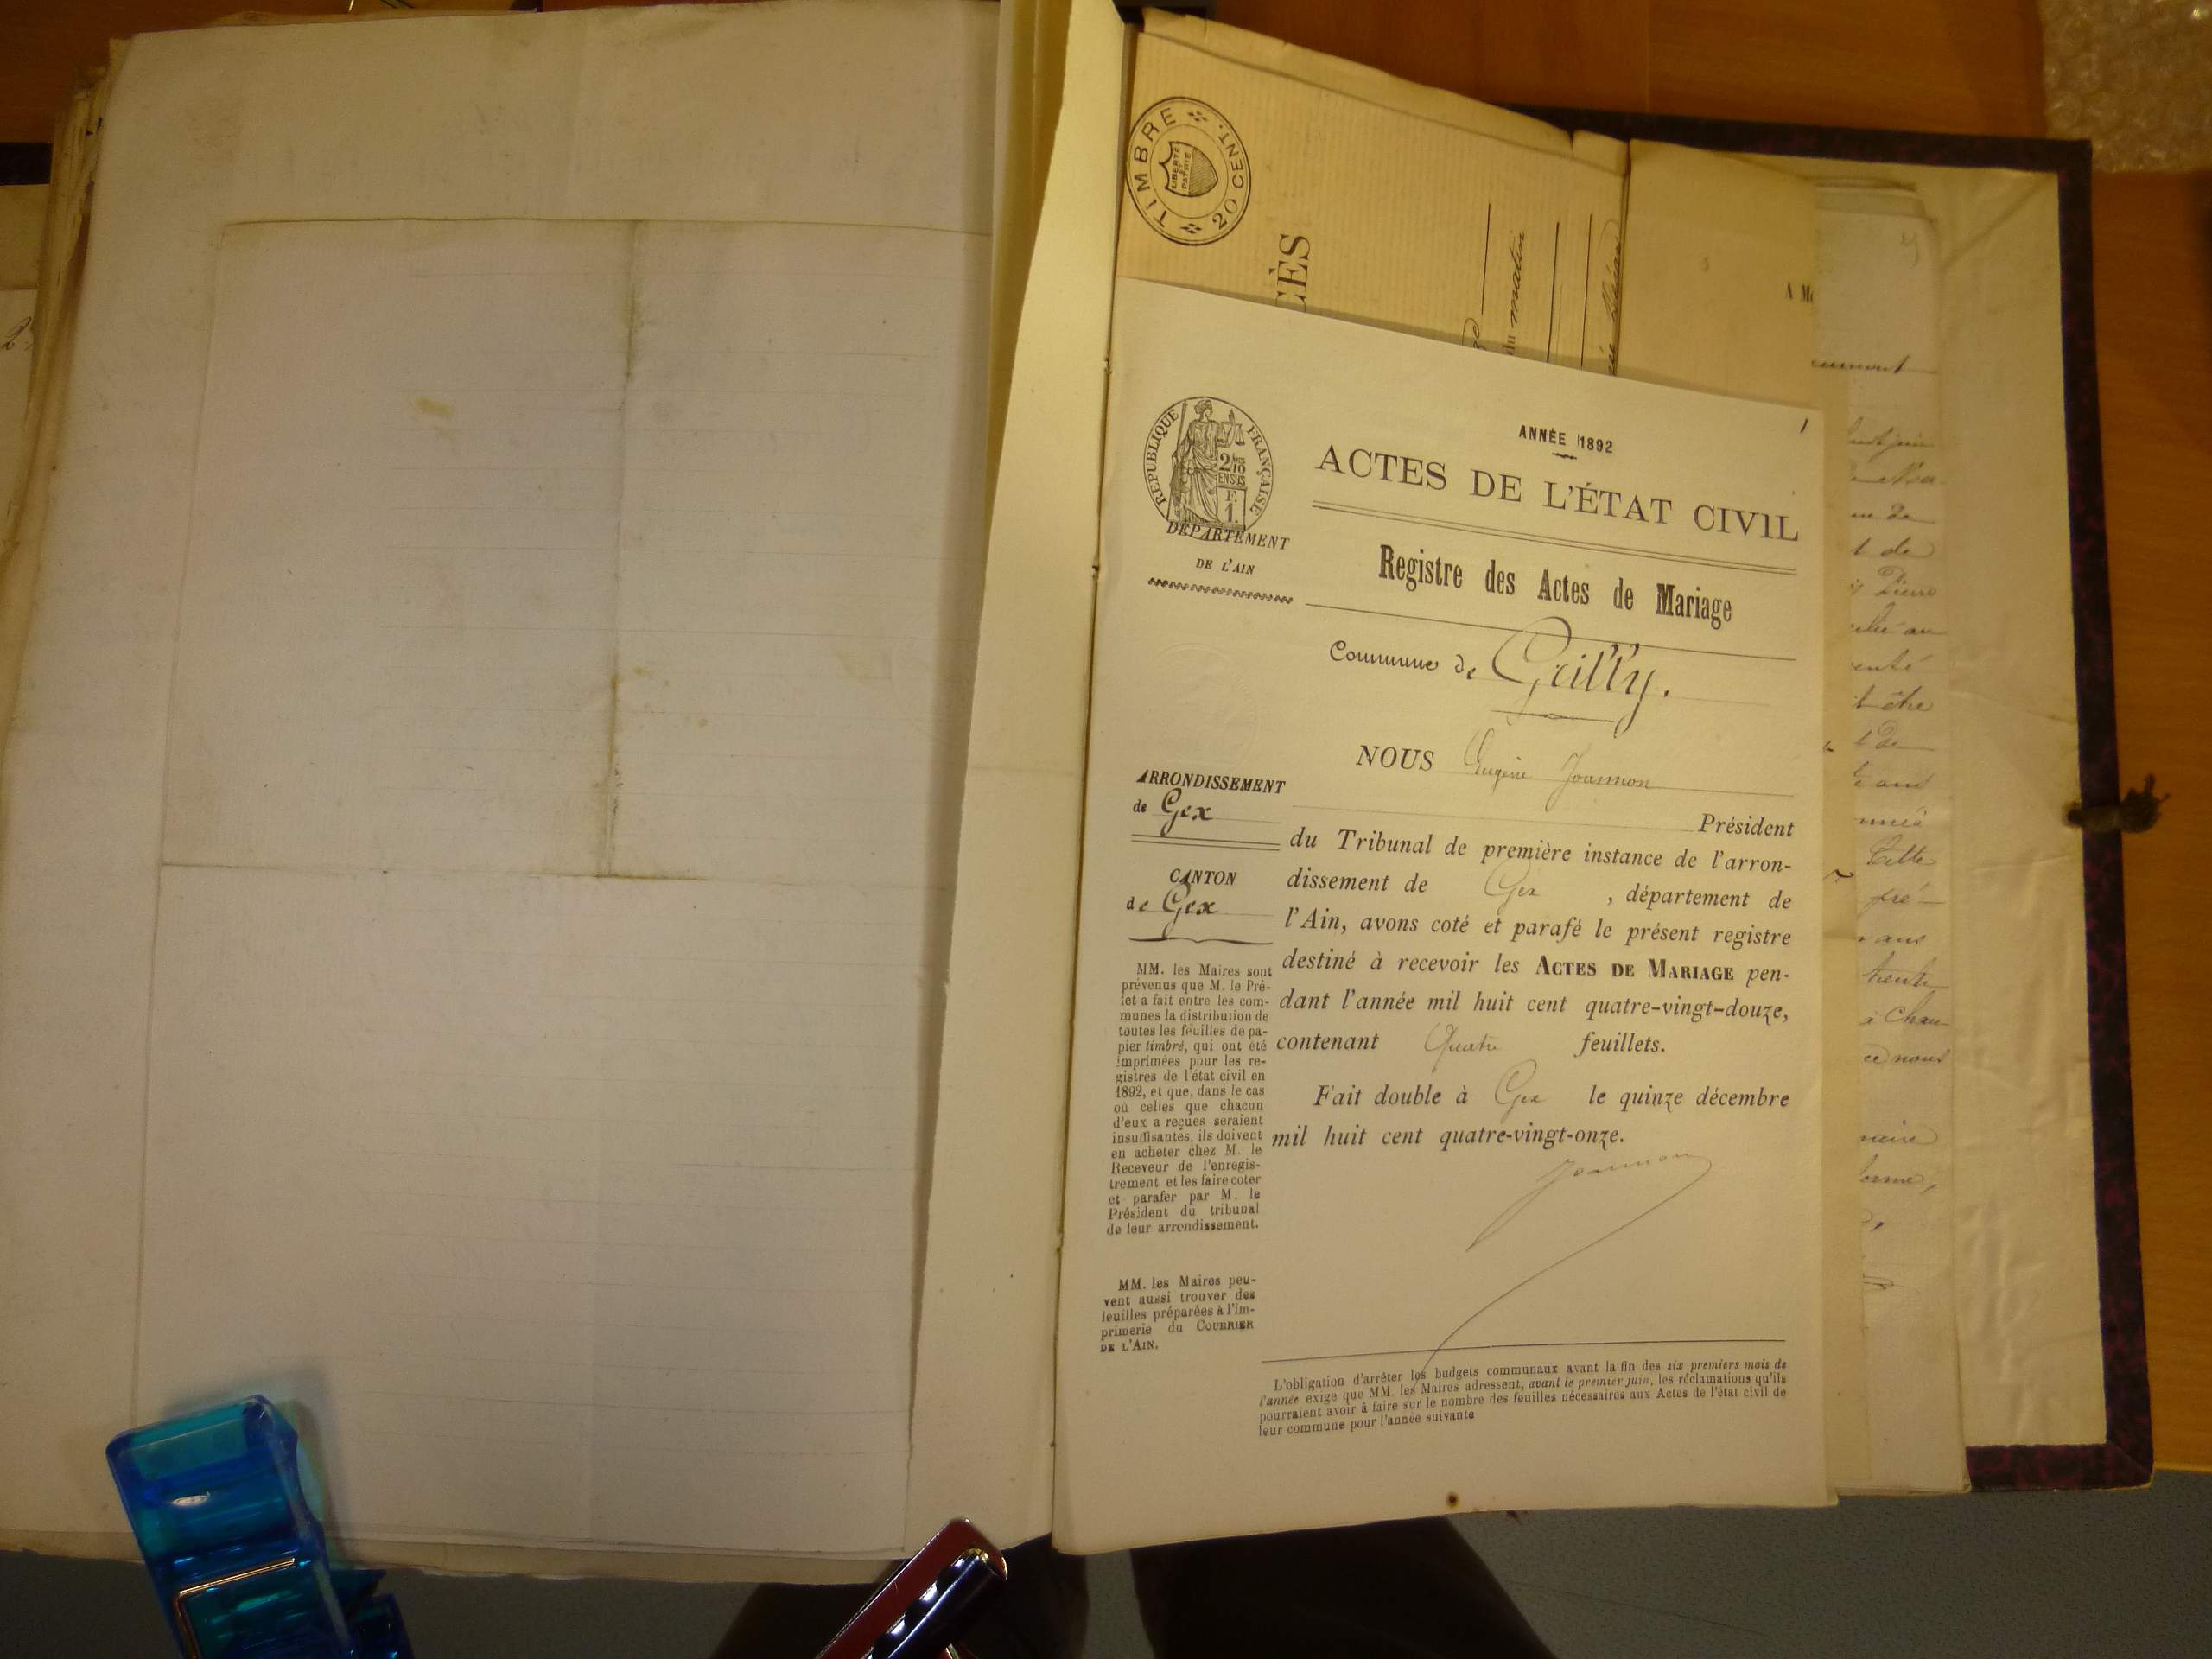 TIMBRE
20 CENT.
LIBERTÉ
ET
PATRIE
ÈS
du matin
A M
1
ANNÉE 1892
ACTES DE L'ÉTAT CIVIL
RÉPUBLIQUE FRANÇAISE
2/10
EN SUS
F.
1.
DÉPARTEMENT
DE L'AIN
Registre des Actes de Mariage
Commune de Grilly.
NOUS Eugène Joannon
Président
du Tribunal de première instance de l'arron-
dissement de Gex , département de
l'Ain, avons coté et parafé le présent registre
destiné à recevoir les ACTES DE MARIAGE pen-
dant l'année mil huit cent quatre-vingt-douze,
contenant Quatre feuillets.
Fait double à Gex le quinze décembre
mil huit cent quatre-vingt-onze.
Joannon
ARRONDISSEMENT
de Gex
CANTON
de Gex
MM. les Maires sont
prévenus que M. le Pré-
fet a fait entre les com-
munes la distribution de
toutes les feuilles de pa-
pier timbré, qui ont été
imprimées pour les re-
gistres de l'état civil en
1892, et que, dans le cas
où celles que chacun
d'eux a reçues seraient
insuffisantes, ils doivent
en acheter chez M. le
Receveur de l'enregis-
trement et les faire coter
et parafer par M. le
Président du tribunal
de leur arrondissement.
MM. les Maires peu-
vent aussi trouver des
feuilles préparées à l'im-
primerie du COURRIER
DE L'AIN.
L'obligation d'arrêter les budgets communaux avant la fin des six premiers mois de
l'année exige que MM. les Maires adressent, avant le premier juin, les réclamations qu'ils
pourraient avoir à faire sur le nombre des feuilles nécessaires aux Actes de l'état civil de
leur commune pour l'année suivante
t de
Pierre
t être
t de
ans
Cette
pré-
ans
trente
à Chau
ce nous